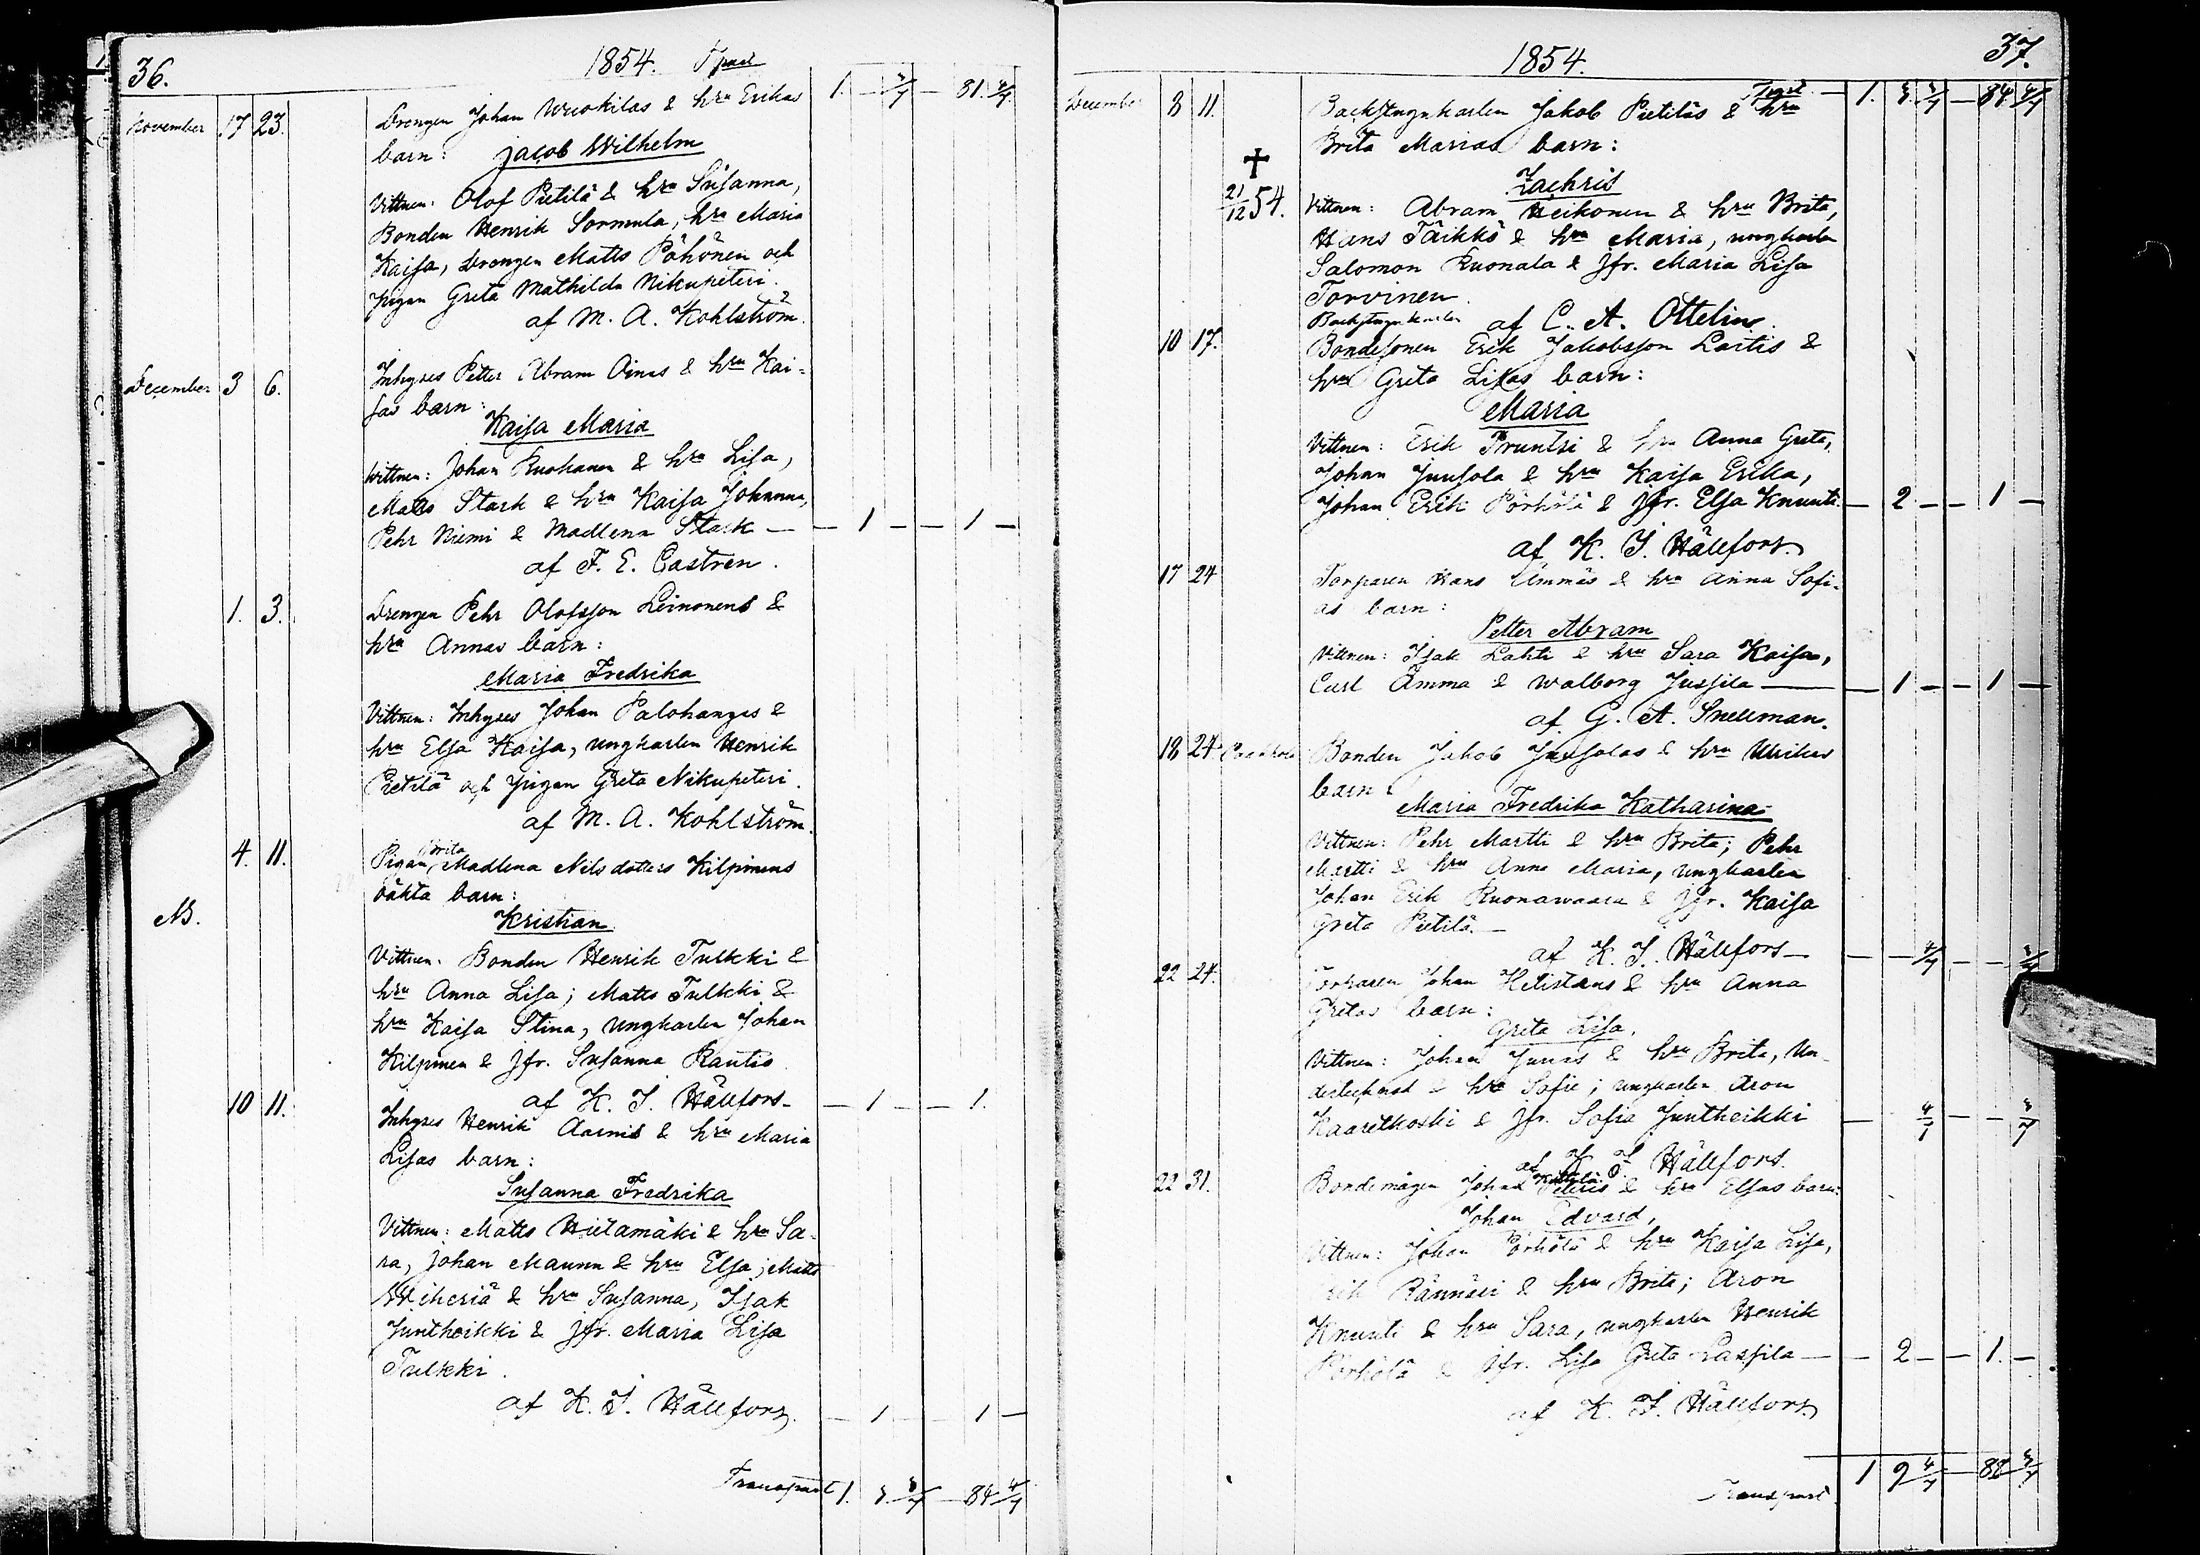 36.
1854. Tpart
1. — 3/4 — 81. 4/4
November 17 23. Drengen Johan Wuokilas & hru Erikas
barn: Jacob Wilhelm
Vittnen: Olof Pietilä & hru Susanna,
Bonden Henrik Sormula, hru Maria
Kaisa, Drengen Matts Pöhönen och
pigan Greta Mathilda Nikupeteri.
af M. A. Kohlström.
December 3 6. Inhyses Petter Abram Oinas & hru Kai-
sas barn:
Kaisa Maria
Vittnen: Johan Ruokanen & hru Lisa,
Matts Stark & hru Kaisa Johanna,
Pehr Niemi & Madlena Stark — — 1 — — 1 —
af F. E. Castren.
1. 3. Drengen Pehr Olofsson Leinonens &
hru Annas barn:
Maria Fredrika
Vittnen: Inhyses Johan Palohanges &
hru Elsa Kaisa, ungkarlen Henrik
Pietilä och pigan Greta Nikupeteri.
af M. A. Kohlström.
4. 11. Pigan Brita Madlena Nilsdotters Kilpinens
oäkta barn:
NB.
Kristian
Vittnen. Bonden Henrik Tulkki &
hru Anna Lisa; Matts Tulkki &
hru Kaisa Stina, ungkarlen Johan
Kilpinen & Jfr. Susanna Rautio
af K. I. Hällfors — 1 — — 1.
10 11. Inhyses Henrik Aarnis & hru Maria
Lisas barn:
Susanna Fredrika
Vittnen: Matts Hietamäki & hru Sa-
ra, Johan Maunu & hru Elsa; Matts
Wiheriä & hru Susanna, Isak
Juntheikki & Jfr. Maria Lisa
Tulkki.
af K. I. Hällfors. — 1 — 1 —
Transport 1. 3. 3/4 — 84 4/4
1854.
37.
Tprt. — 1. 3. 3/4 — 84 4/4
December 8 11. Backstugukarlen Jakob Pietiläs & hru
Brita Marias barn:
†
21/12 54.
Zachris
Vittnen: Abram Heikonen & hru Brita,
Hans Täikkö & hru Maria, ungkarlen
Salomon Ruonala & Jfr. Maria Lisa
Torvinen.
Backstugukarlen af C. A. Ottelin.
10 17. Bondesonen Erik Jakobsson Laitis &
hru Greta Lisas barn:
Maria
Vittnen: Erik Pruntsi & hru Anna Greta,
Johan Juusola & hru Kaisa Erika,
Johan Erik Pörhölä & Jfr. Elsa Knuuti. — 2 — — 1 —
af K. I. Hällfors.
17 24 Torparen Hans Ämmäs & hru Anna Sofi-
as barn:
Petter Abram
Vittnen: Isak Lahti & hru Sara Kaisa,
Carl Ämmä & Walborg Jussila — — 1 — — 1 —
af G. A. Snellman.
18 24 Bonden Jakob Juusolas & hru Ulrikas
barn:
Maria Fredrika Katharina
Vittnen: Pehr Martti & hru Brita; Pehr
Martti & hru Anna Maria, ungkarlen
Johan Erik Ruonawaara & Jfr. Kaisa
Greta Pietilä. —
af K. I. Hällfors — — — 4/4 — — 3/4
22 24. Torparen Johan Helistens & hru Anna
Gretas barn:
Greta Lisa.
Vittnen: Johan Junas & hru Brita, Un-
dertecknad & hru Sofie; ungkarlen Aron
Kaaretkoski & Jfr. Sofia Juntheikki — 4/4 — — 3/4
af K. I. Hällfors.
22 31. Bondemågen Johan Peteris & hru Elsas barn:
Johan Edvard,
Vittnen: Johan Pörhölä & hru Kaisa Lisa,
Erik Rännäri & hru Brita; Aron
Knuuti & hru Sara, ungkarlen Henrik
Pörhölä & Jfr. Lisa Greta Lassila — — 2 — — 1. —
af K. I. Hällfors.
Transport. 1 9 4/4 — 88 3/4